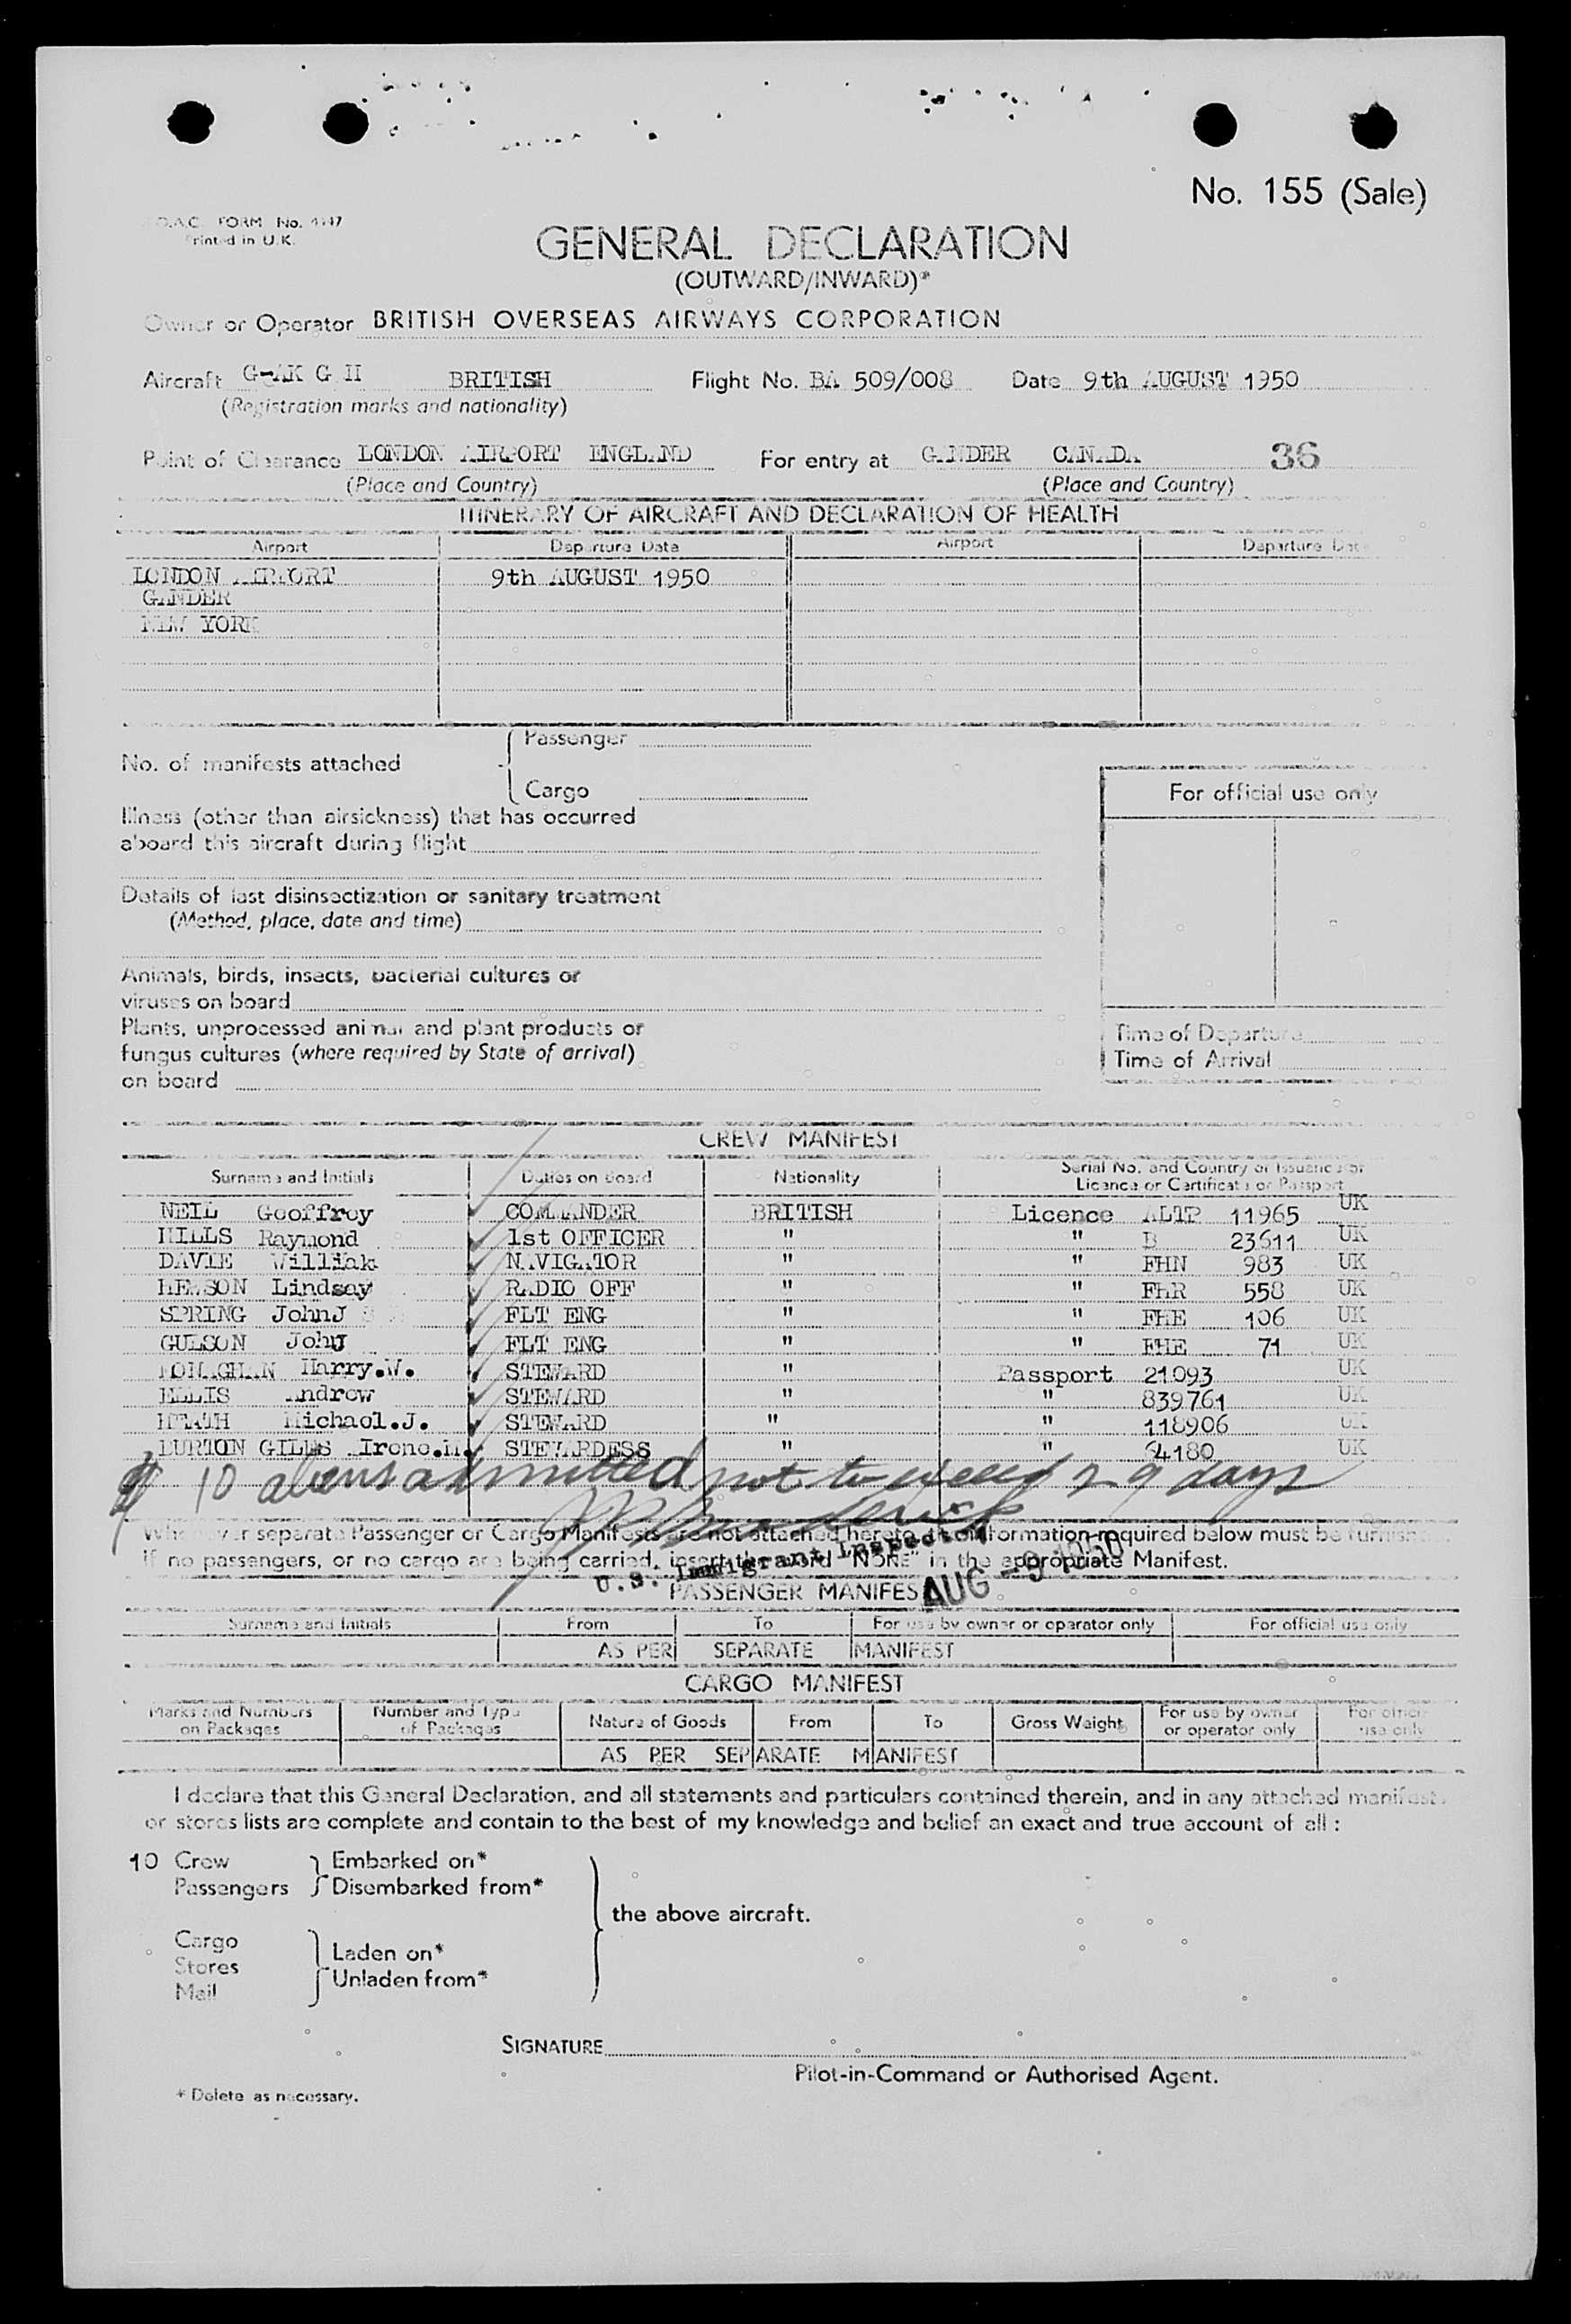 No. 155 (Sale)
FORM No.
Printed in U.K.
GENERAL DECLARATION
(OUTWARD/INWARD)*
Owner or Operator BRITISH OVERSEAS AIRWAYS CORPORATION
Aircraft G-AK G II BRITISH Flight No. BA 509/008 Date 9th AUGUST 1950
(Registration marks and nationality)
Point of Clearance LONDON AIRPORT ENGLAND For entry at GANDER CANADA 36
(Place and Country) (Place and Country)
ITINERARY OF AIRCRAFT AND DECLARATION OF HEALTH
Airport Departure Date Airport Departure Date
LONDON AIRPORT 9th AUGUST 1950
GANDER
NEW YORK
Passenger
No. of manifests attached
Cargo
For official use only
Illness (other than airsickness) that has occurred
aboard this aircraft during flight
Details of last disinsectization or sanitary treatment
(Method, place, date and time)
Animals, birds, insects, bacterial cultures or
viruses on board
Plants, unprocessed animal and plant products or
fungus cultures (where required by State of arrival)
on board
Time of Departure
Time of Arrival
CREW MANIFEST
Surname and Initials Duties on Board Nationality Serial No. and Country of Issuance of
Licence or Certificate or Passport
NEIL Geoffrey COMMANDER BRITISH Licence ALTP 11965 UK
HILLS Raymond 1st OFFICER " " B 23611 UK
DAVIE Williak NAVIGATOR " " FHN 983 UK
HEWSON Lindsay RADIO OFF " " FHR 558 UK
SPRING JohnJ FLT ENG " " FHE 106 UK
GULSON John FLT ENG " " FHE 71 UK
MONAGHAN Harry.W. STEWARD " Passport 21093 UK
ELLIS Andrew STEWARD " " 839761 UK
HEATH Michael.J. STEWARD " " 118906 UK
BURTON GILES Irene.M. STEWARDESS " " 64180 UK
10 aliens admitted not to exceed 29 days
Whenever separate Passenger or Cargo Manifests are not attached hereto, the information required below must be furnished.
If no passengers, or no cargo are being carried, insert the word "NONE" in the appropriate Manifest.
U.S. Immigrant Inspector
AUG -9 1950
PASSENGER MANIFEST
Surname and Initials From To For use by owner or operator only For official use only
AS PER SEPARATE MANIFEST
CARGO MANIFEST
Marks and Numbers on Packages Number and Type of Packages Nature of Goods From To Gross Weight For use by owner or operator only For official use only
AS PER SEPARATE MANIFEST
I declare that this General Declaration, and all statements and particulars contained therein, and in any attached manifests
or stores lists are complete and contain to the best of my knowledge and belief an exact and true account of all :
10 Crew Embarked on*
Passengers Disembarked from*
the above aircraft.
Cargo
Stores Laden on*
Mail Unladen from*
SIGNATURE
Pilot-in-Command or Authorised Agent.
* Delete as necessary.